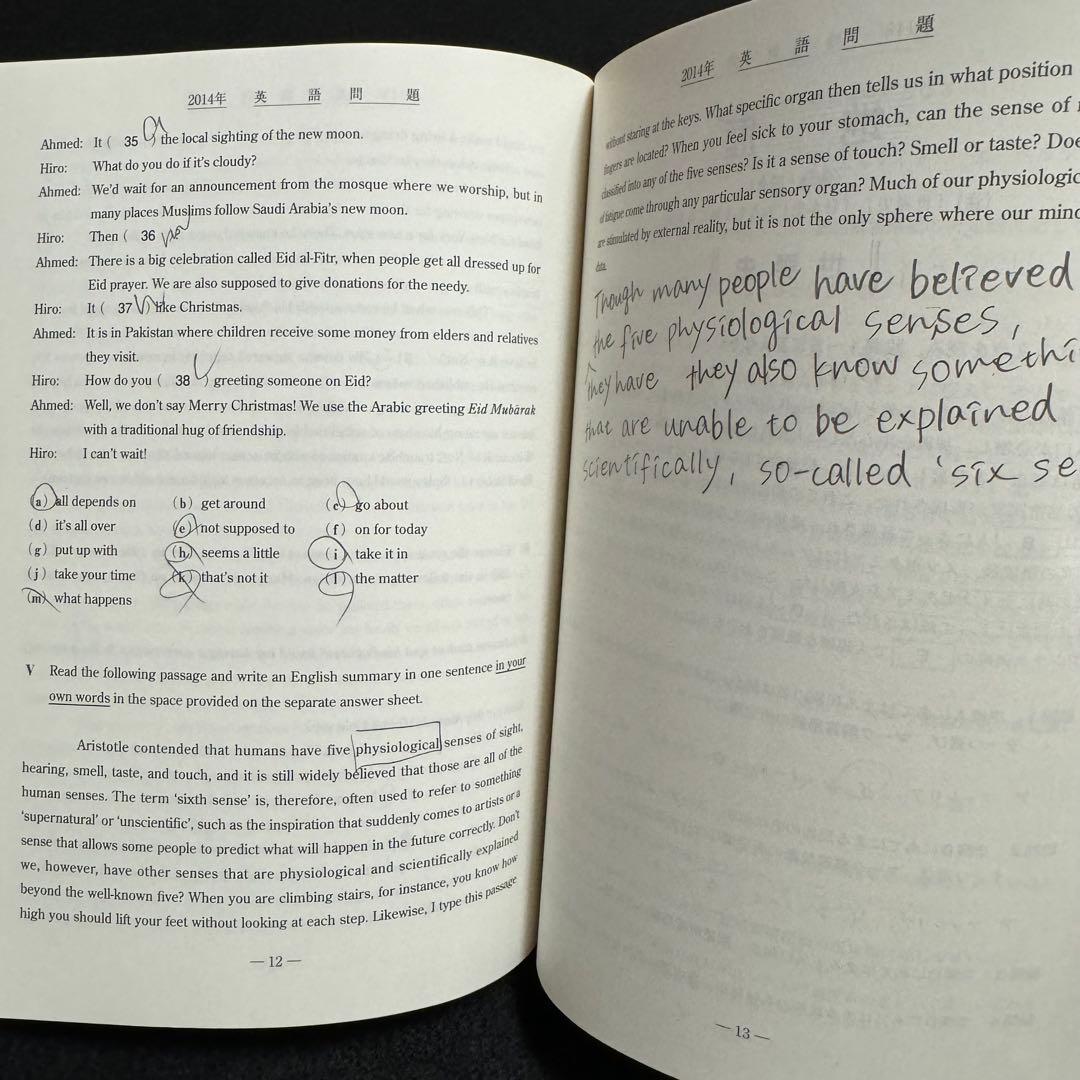 2014年 英語問題
Ahmed: It ( 35 ) the local sighting of the new moon.
Hiro: What do you do if it's cloudy?
Ahmed: We'd wait for an announcement from the mosque where we worship, but in
many places Muslims follow Saudi Arabia's new moon.
Hiro: Then ( 36
Ahmed: There is a big celebration called Eid al-Fitr, when people get all dressed up for
Eid prayer. We are also supposed to give donations for the needy.
Hiro: It ( 37 ) like Christmas.
Ahmed: It is in Pakistan where children receive some money from elders and relatives
they visit.
Hiro: How do you ( 38 ) greeting someone on Eid?
Ahmed: Well, we don't say Merry Christmas! We use the Arabic greeting Eid Mubārak
with a traditional hug of friendship.
Hiro: I can't wait!
(a) all depends on (b) get around (c) go about
(d) it's all over (e) not supposed to (f) on for today
(g) put up with (h) seems a little (i) take it in
(j) take your time (k) that's not it (l) the matter
(m) what happens
V Read the following passage and write an English summary in one sentence in your
own words in the space provided on the separate answer sheet.
Aristotle contended that humans have five physiological senses of sight,
hearing, smell, taste, and touch, and it is still widely believed that those are all of the
human senses. The term 'sixth sense' is, therefore, often used to refer to something
'supernatural' or 'unscientific', such as the inspiration that suddenly comes to artists or a
sense that allows some people to predict what will happen in the future correctly. Don't
we, however, have other senses that are physiological and scientifically explained
beyond the well-known five? When you are climbing stairs, for instance, you know how
high you should lift your feet without looking at each step. Likewise, I type this passage
— 12 —
2014年 英語問題
without staring at the keys. What specific organ then tells us in what position
fingers are located? When you feel sick to your stomach, can the sense of
classified into any of the five senses? Is it a sense of touch? Smell or taste? Doe
of fatigue come through any particular sensory organ? Much of our physiologic
are stimulated by external reality, but it is not the only sphere where our mind
data.
Though many people have believed
the five physiological senses,
they have they also know somethi
that are unable to be explained
scientifically, so-called 'six se
— 13 —